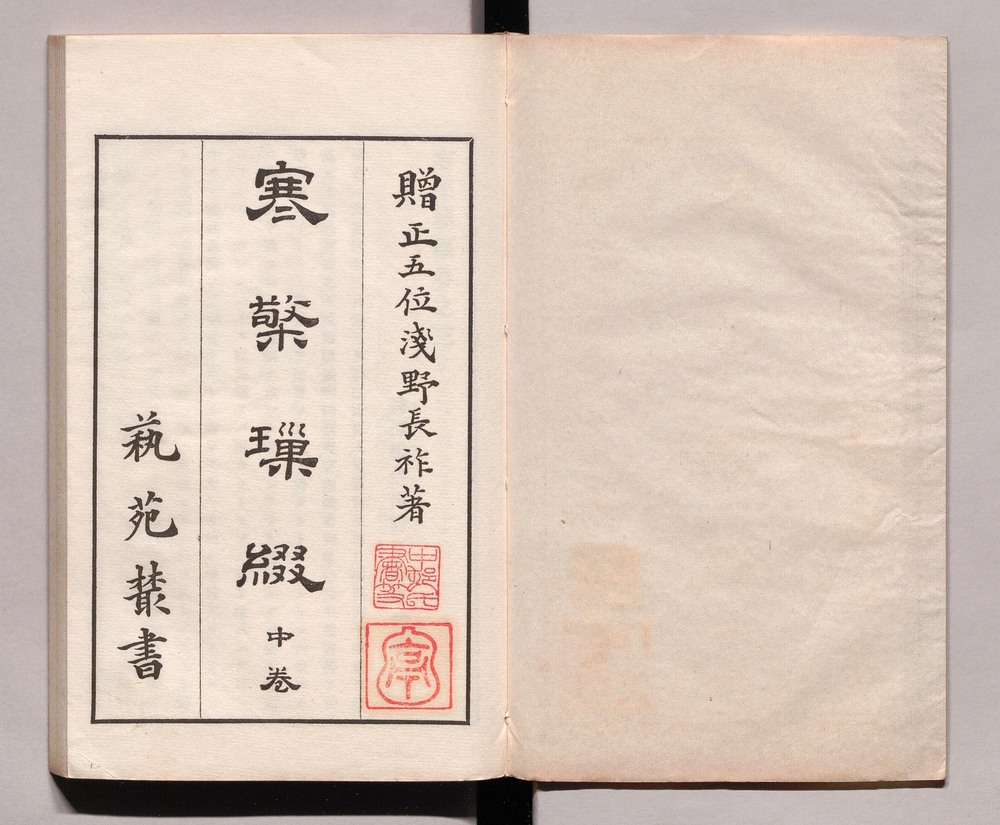 贈正五位淺野長祚著
寒檠璅綴 中卷
蓺苑叢書